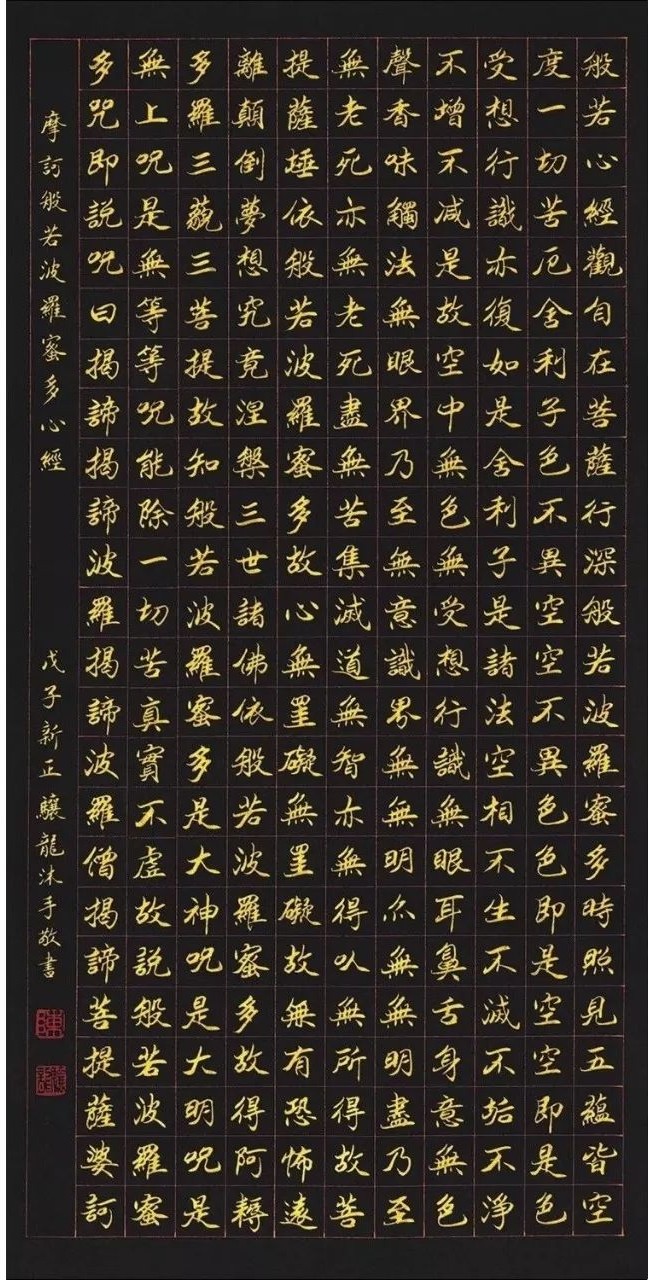 般若心經觀自在菩薩行深般若波羅蜜多時照見五蘊皆空
度一切苦厄舍利子色不異空空不異色色即是空空即是色
受想行識亦復如是舍利子是諸法空相不生不滅不垢不淨
不增不减是故空中無色無受想行識無眼耳鼻舌身意無色
聲香味觸法無眼界乃至無意識界無無明亦無無明盡乃至
無老死亦無老死盡無苦集滅道無智亦無得以無所得故菩
提薩埵依般若波羅蜜多故心無罣礙無罣礙故無有恐怖遠
離顛倒夢想究竟涅槃三世諸佛依般若波羅蜜多故得阿耨
多羅三藐三菩提故知般若波羅蜜多是大神咒是大明咒是
無上咒是無等等咒能除一切苦真實不虛故說般若波羅蜜
多咒即說咒曰揭諦揭諦波羅揭諦波羅僧揭諦菩提薩婆訶
摩訶般若波羅蜜多心經
戊子新正驤龍沐手敬書